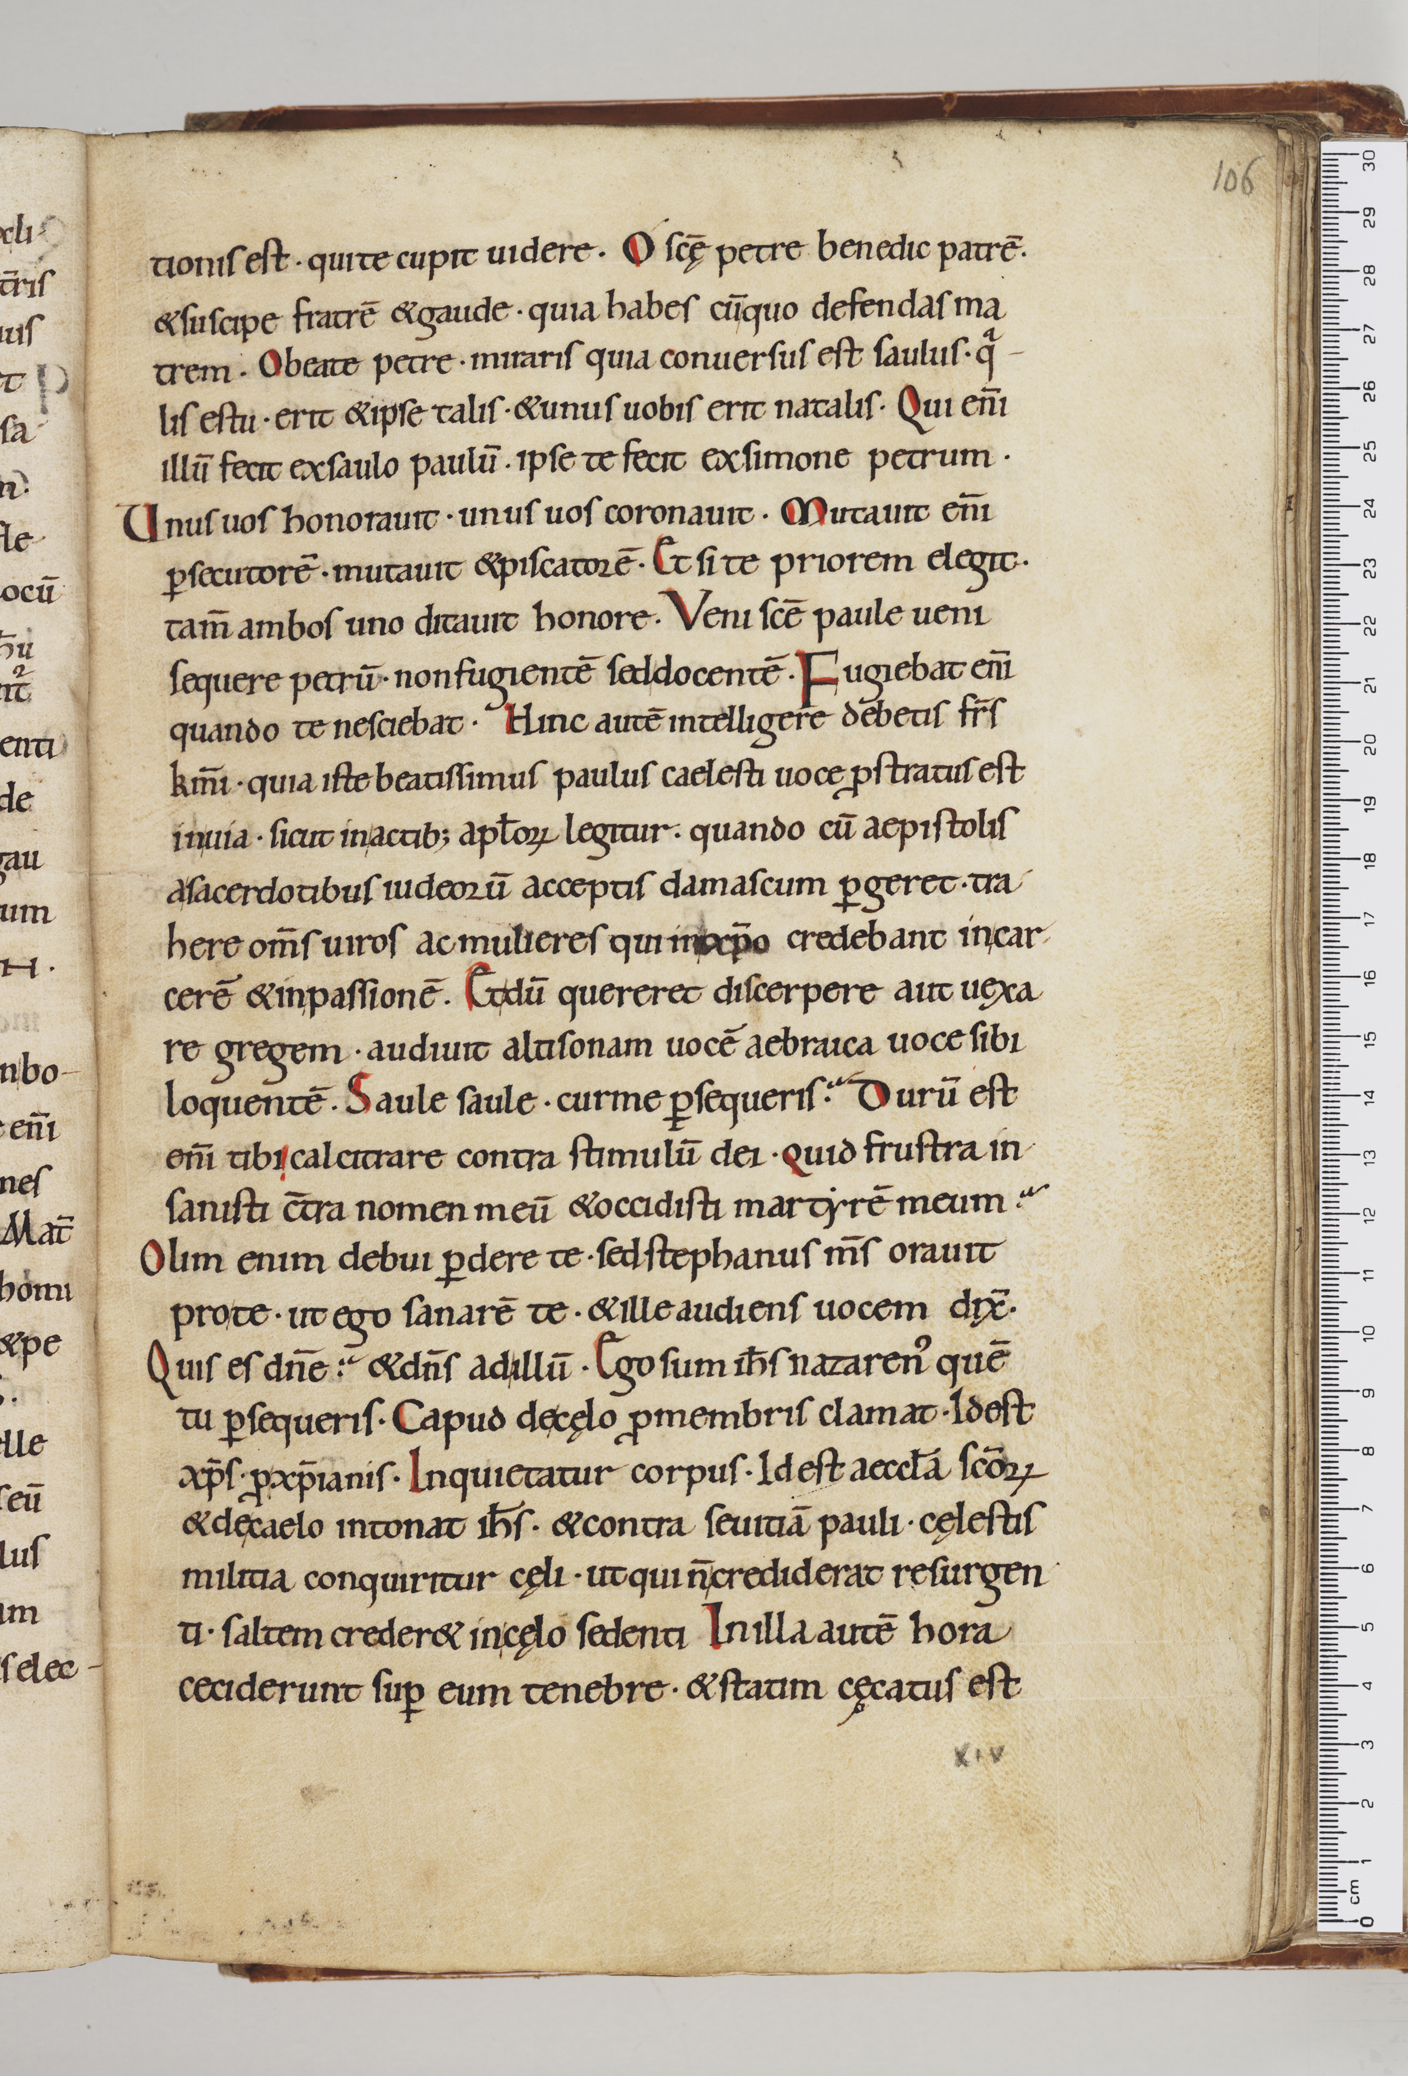 106
tionis est · qui te cupit uidere · O sc̄ę petre benedic patrē ·
& suscipe fratrē & gaude · quia habes cū quo defendas ma
trem · O beate petre · miraris quia conuersus est saulus · qͣ
lis es tu · erit & ipse talis · & unus uobis erit natalis · Qui eni̅
illū fecit ex saulo paulū · ipse te fecit ex simone petrum ·
Unus uos honorauit · unus uos coronauit · Mutauit eni̅
ꝑsecutorē · mutauit & piscatorē · Et si te priorem elegit ·
tam̅ ambos uno ditauit honore · Veni sc̄e paule ueni
sequere petrū · non fugientē sed docentē · Fugiebat eni̅
quando te nesciebat · Hinc autē intelligere debetis fr̄s
km̄i · quia iste beatissimus paulus caelesti uoce ꝓstratus est
in uia · sicut in actib; apl̄oꝝ legitur · quando cū aepistolis
a sacerdotibus iudeorū acceptis damascum ꝑgeret · tra
here om̄s uiros ac mulieres qui in xp̄o credebant in car
cerē & in passionē · Et dū quereret discerpere aut uexa
re gregem · audiuit altisonam uocē aebraica uoce sibi
loquentē · Saule saule · cur me ꝑsequeris? Durū est
eni̅ tibi calcitrare contra stimulū dei · quid frustra in
sanisti c̄tra nomen meū & occidisti martyrē meum?
Olim enim debui ꝑdere te · sed stephanus m̄s orauit
pro te · ut ego sanarē te · & ille audiens uocem dix̄ ·
Quis es dn̄e? & dn̄s ad illū · Ego sum ih̄s nazarenꝰ quē
tu ꝑsequeris · Capud de cęlo ꝓ membris clamat · Id est
xp̄s · ꝓ xp̄ianis · Inquietatur corpus · Id est aeccl̄a sc̄oꝝ
& de caelo intonat ih̄s · & contra seuitiā pauli · cęlestis
militia conquiritur cęli · ut qui n̄ crediderat resurgen
ti · saltem creder& in cęlo sedenti In illa autē hora
ceciderunt suꝑ eum tenebre · & statim cęcatus est
xiv